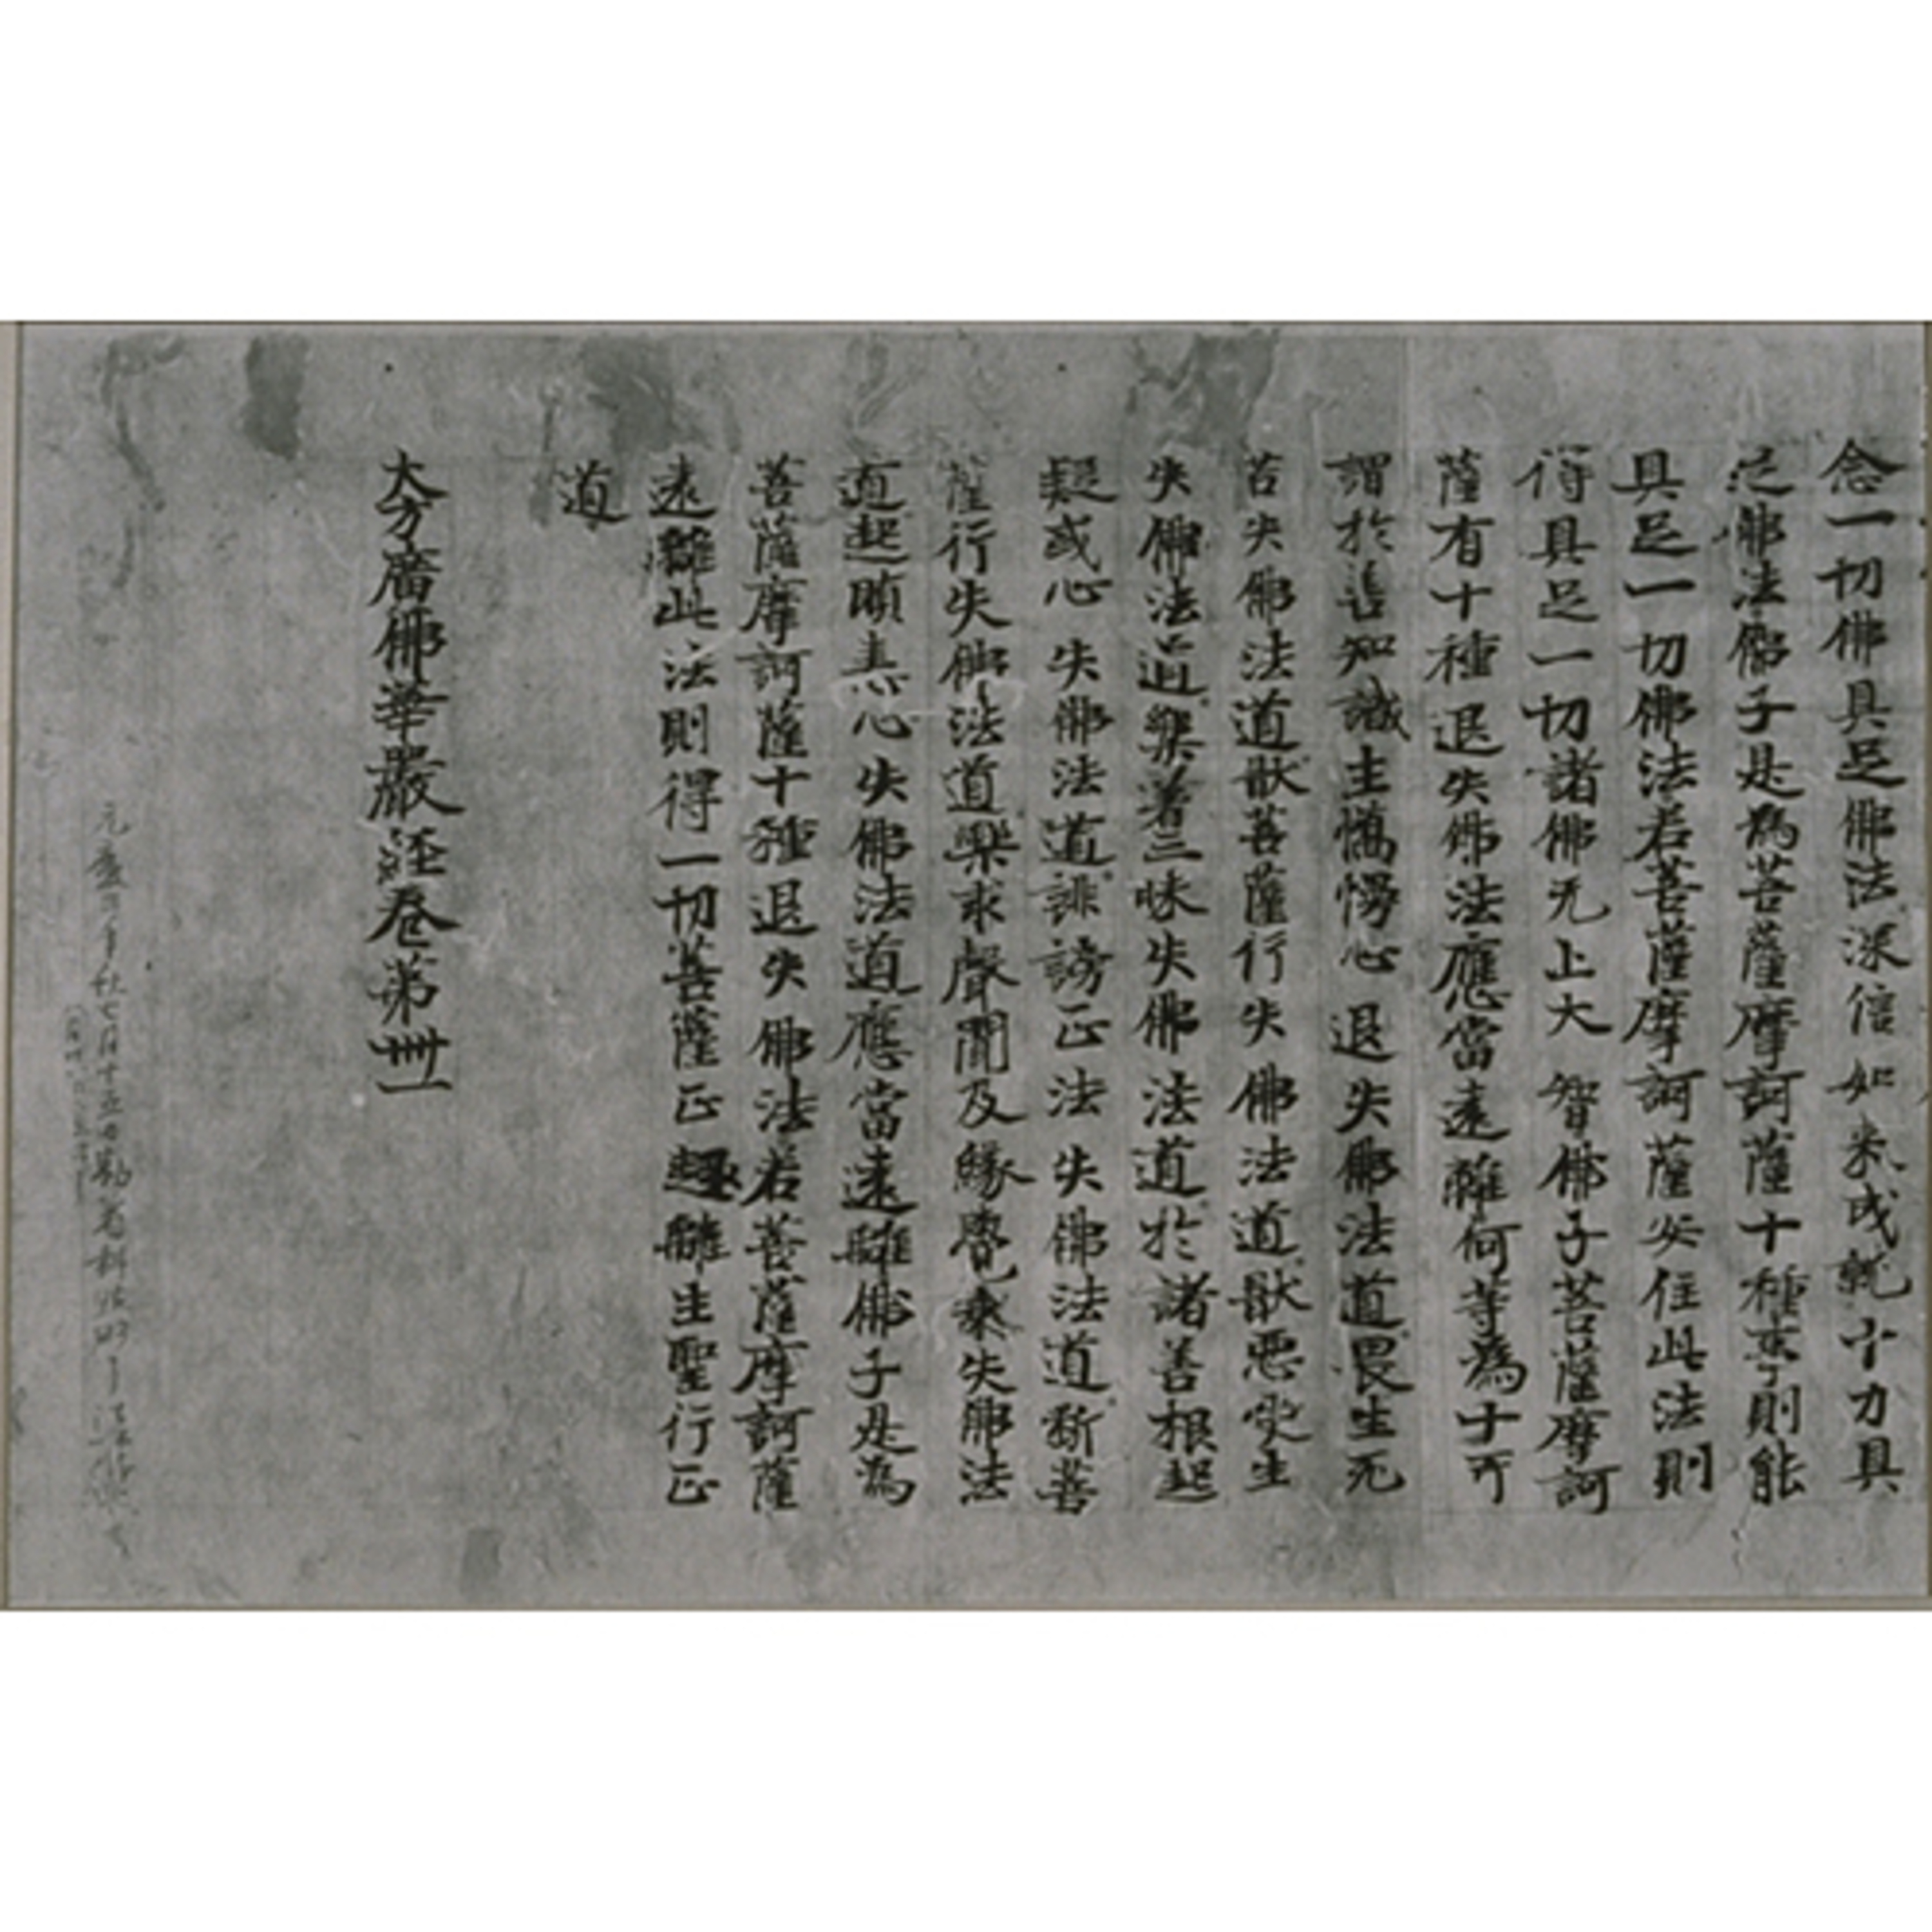 念一切佛具足佛法深信如来成就十力具
足佛法佛子是為菩薩摩訶薩十種行則能
具足一切佛法若菩薩摩訶薩安住此法則
得具足一切諸佛无上大智佛子菩薩摩訶
薩有十種退失佛法應當遠離何等為十所
謂於善知識生憍慢心退失佛法道畏生死
苦失佛法道猒菩薩行失佛法道猒惡受生
失佛法道樂著三昧失佛法道於諸善根起
疑或心失佛法道誹謗正法失佛法道斷菩
薩行失佛法道樂求聲聞及緣覺乘失佛法
道起瞋恚心失佛法道應當遠離佛子是為
菩薩摩訶薩十種退失佛法若菩薩摩訶薩
遠離此法則得一切菩薩正趣離生聖行正
道
大方廣佛華嚴経卷苐卌一
元慶年七月十五日勘省科